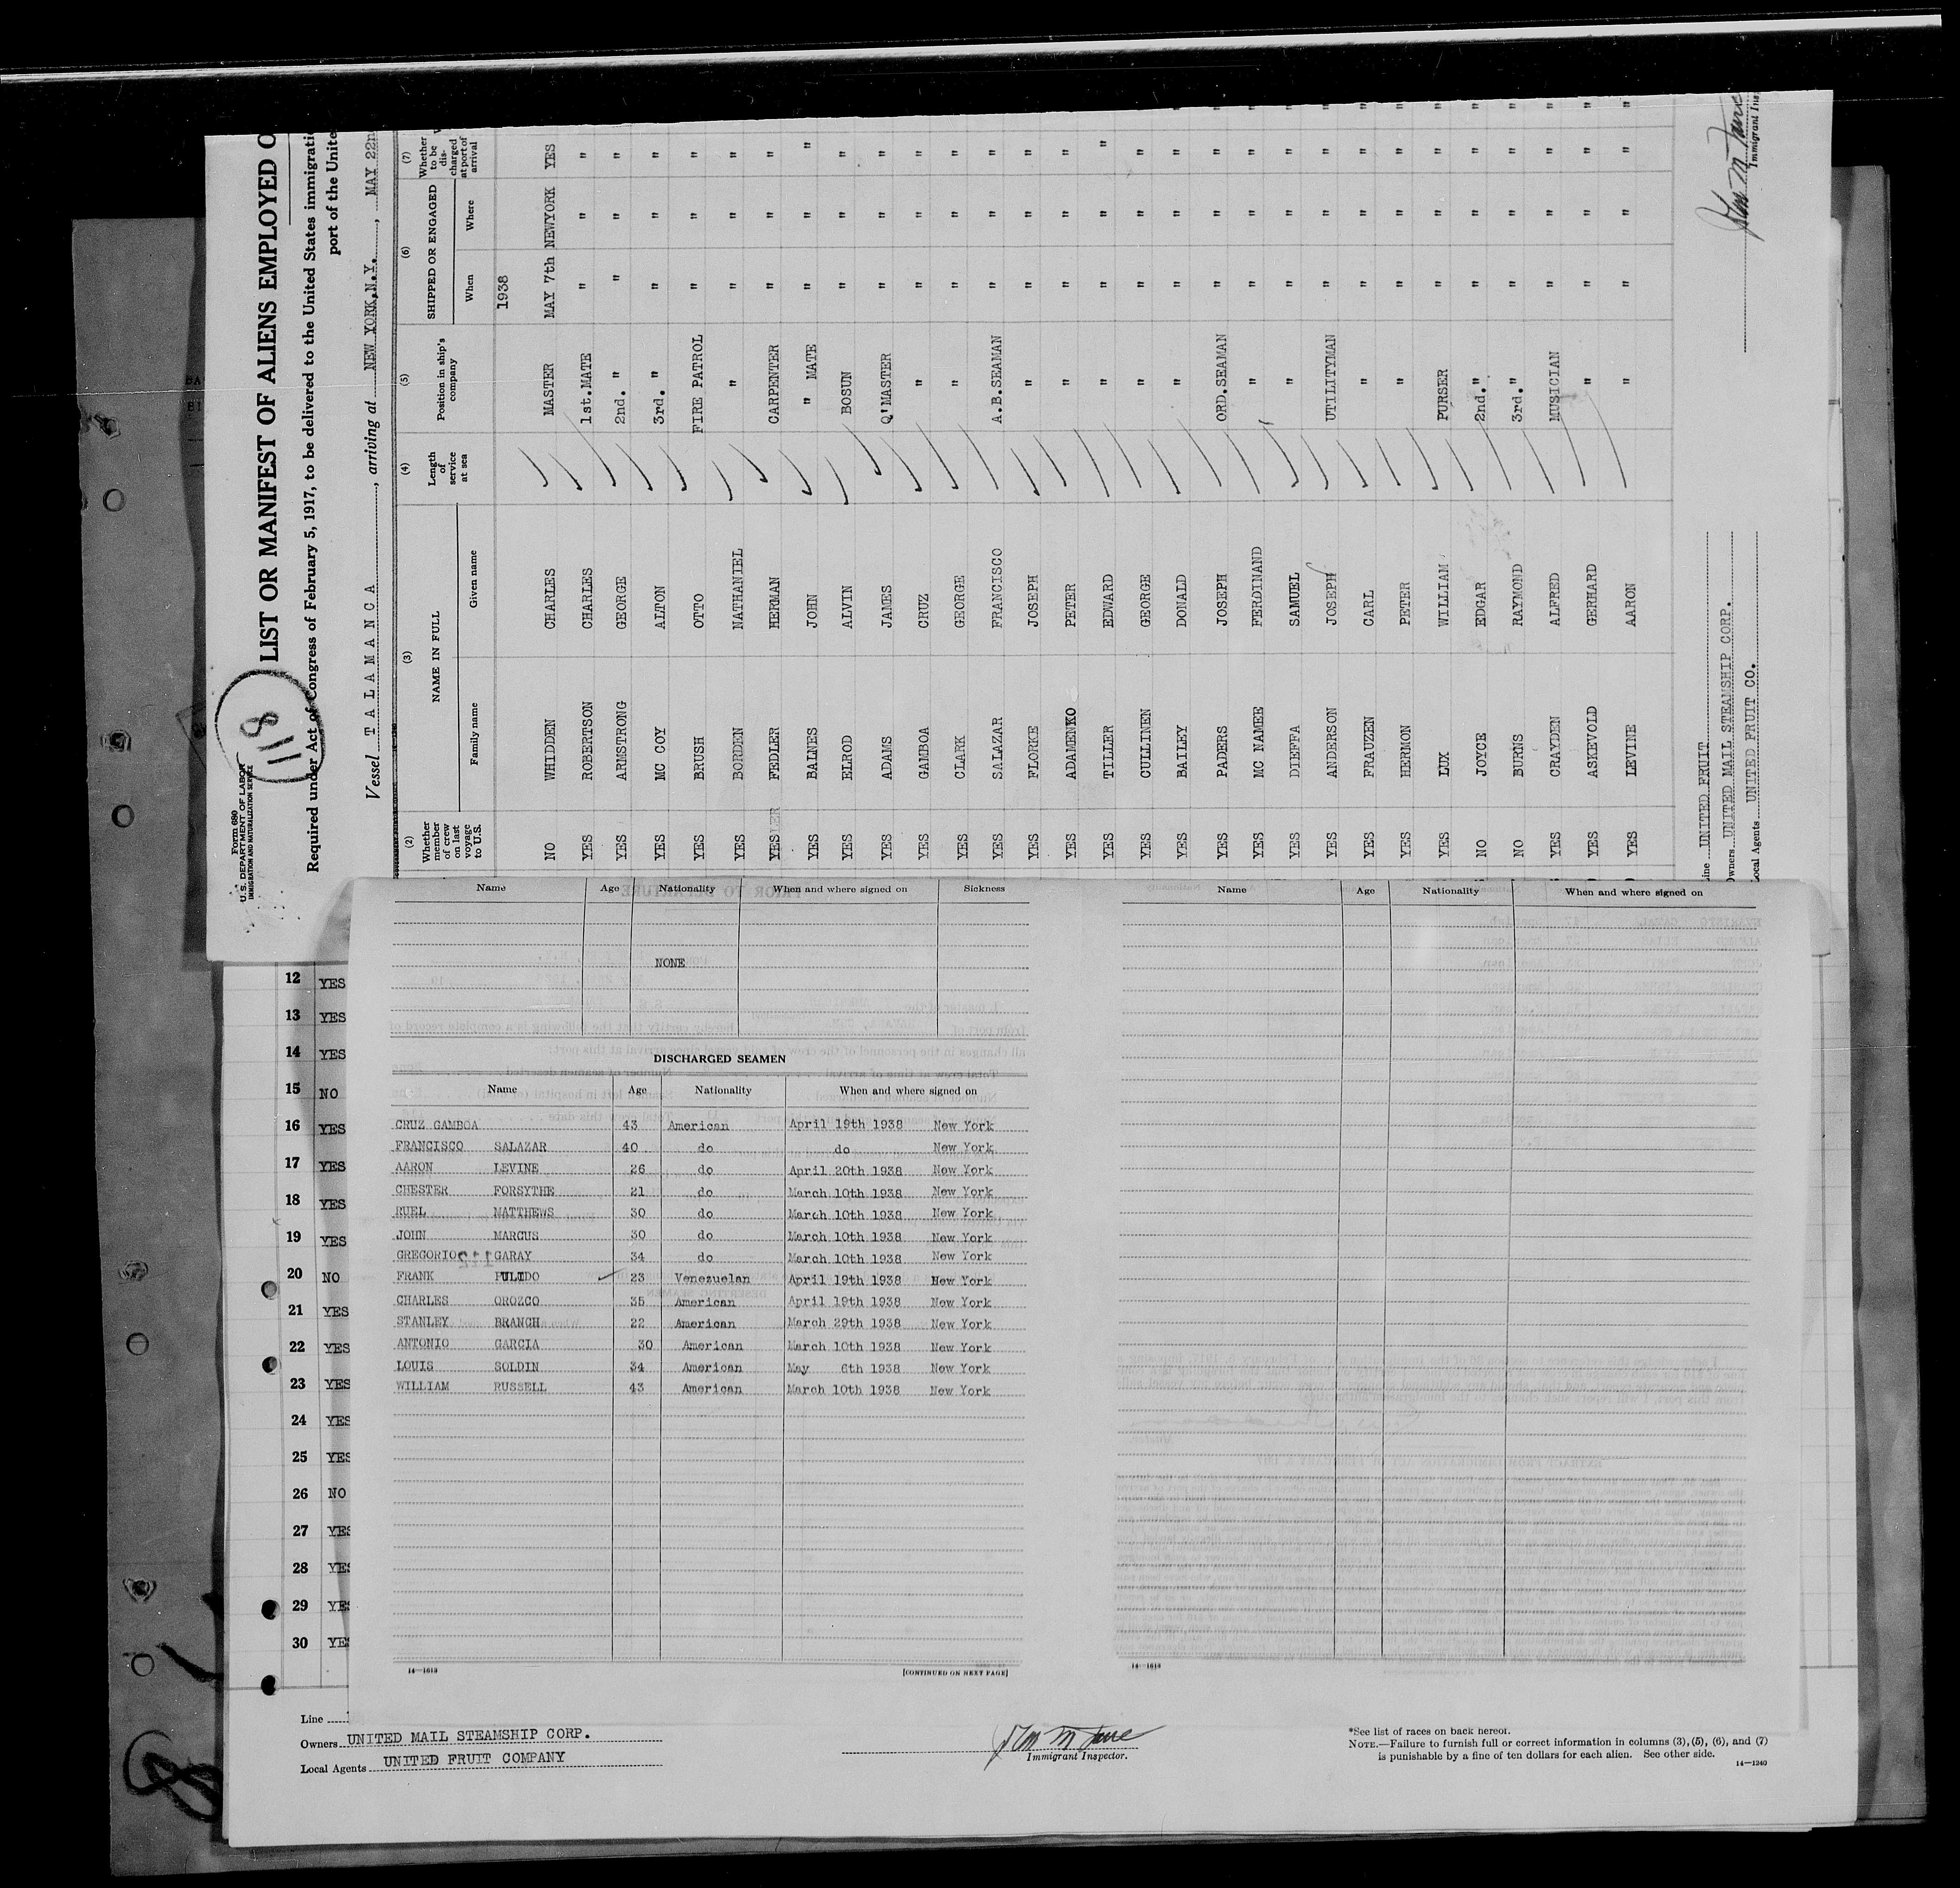 Form 680
U. S. DEPARTMENT OF LABOR
IMMIGRATION AND NATURALIZATION SERVICE
118
LIST OR MANIFEST OF ALIENS EMPLOYED O
Required under Act of Congress of February 5, 1917, to be delivered to the United States immigrati
port of the Unite
Vessel TALAMANCA, arriving at NEW YORK, N.Y., MAY 22n
(2) Whether member of crew on last voyage to U.S.
(3) NAME IN FULL
Family name Given name
(4) Length of service at sea
(5) Position in ship's company
(6) SHIPPED OR ENGAGED
When Where
(7) Whether to be discharged at port of arrival
1938
NO WHIDDEN CHARLES MASTER MAY 7th NEWYORK YES
YES ROBERTSON CHARLES 1st.MATE " " "
YES ARMSTRONG GEORGE 2nd. " " " "
YES MC COY ALTON 3rd. " " " "
YES BRUSH OTTO FIRE PATROL " " "
YES BORDEN NATHANIEL " " " "
YES FEDLER HERMAN CARPENTER " " "
YES BALNES JOHN " MATE " " "
YES ELROD ALVIN BOSUN " " "
YES ADAMS JAMES Q'MASTER " " "
YES GAMBOA CRUZ " " " "
YES CLARK GEORGE " " " "
YES SALAZAR FRANCISCO A.B.SEAMAN " " "
YES FLORKE JOSEPH " " " "
YES ADAMENKO PETER " " " "
YES TILLER EDWARD " " " "
YES CULLINEN GEORGE " " " "
YES BAILEY DONALD " " " "
YES PADERS JOSEPH ORD.SEAMAN " " "
YES MC NAMEE FERDINAND " " " "
YES DIEFFA SAMUEL " " " "
YES ANDERSON JOSEPH UTILITYMAN " " "
YES FRAUZEN CARL " " " "
YES HERMON PETER " " " "
YES LUX WILLIAM PURSER " " "
NO JOYCE EDGAR 2nd. " " " "
NO BURNS RAYMOND 3rd. " " " "
YES CRAYDEN ALFRED MUSICIAN " " "
YES ASKEVOLD GERHARD " " " "
YES LEVINE AARON " " " "
Line UNITED FRUIT
Owners UNITED MAIL STEAMSHIP CORP.
Local Agents UNITED FRUIT CO.
Immigrant Ins
Name Age Nationality When and where signed on Sickness
NONE
DISCHARGED SEAMEN
Name Age Nationality When and where signed on
CRUZ GAMBOA 43 American April 19th 1938 New York
FRANCISCO SALAZAR 40 do do New York
AARON LEVINE 26 do April 20th 1938 New York
CHESTER FORSYTHE 21 do March 10th 1938 New York
RUEL MATTHEWS 30 do March 10th 1938 New York
JOHN MARCUS 30 do March 10th 1938 New York
GREGORIO GARAY 34 do March 10th 1938 New York
FRANK PULIDO 23 Venezuelan April 19th 1938 New York
CHARLES OROZCO 35 American April 19th 1938 New York
STANLEY BRANCH 22 American March 29th 1938 New York
ANTONIO GARCIA 30 American March 10th 1938 New York
LOUIS SOLDIN 34 American May 6th 1938 New York
WILLIAM RUSSELL 43 American March 10th 1938 New York
14—1613
[CONTINUED ON NEXT PAGE]
Name Age Nationality When and where signed on
14—1613
12 YES
13 YES
14 YES
15 NO
16 YES
17 YES
18 YES
19 YES
20 NO
21 YES
22 YES
23 YES
24 YES
25 YES
26 NO
27 YES
28 YES
29 YES
30 YES
Line
Owners UNITED MAIL STEAMSHIP CORP.
Local Agents UNITED FRUIT COMPANY
Immigrant Inspector.
*See list of races on back hereof.
NOTE.—Failure to furnish full or correct information in columns (3), (5), (6), and (7)
is punishable by a fine of ten dollars for each alien. See other side.
14—1240